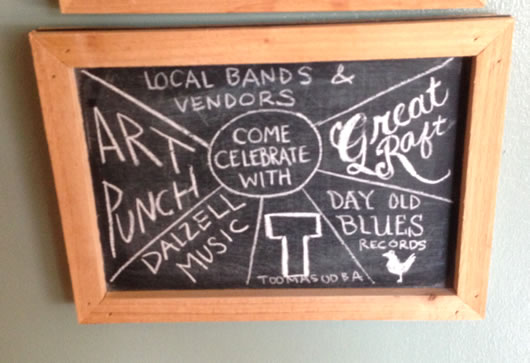 LOCAL BANDS &
VENDORS
COME
CELEBRATE
WITH
Great
Raft
ART
PUNCH
DALZELL
MUSIC
T
TOOMASUOBA
DAY OLD
BLUES
RECORDS